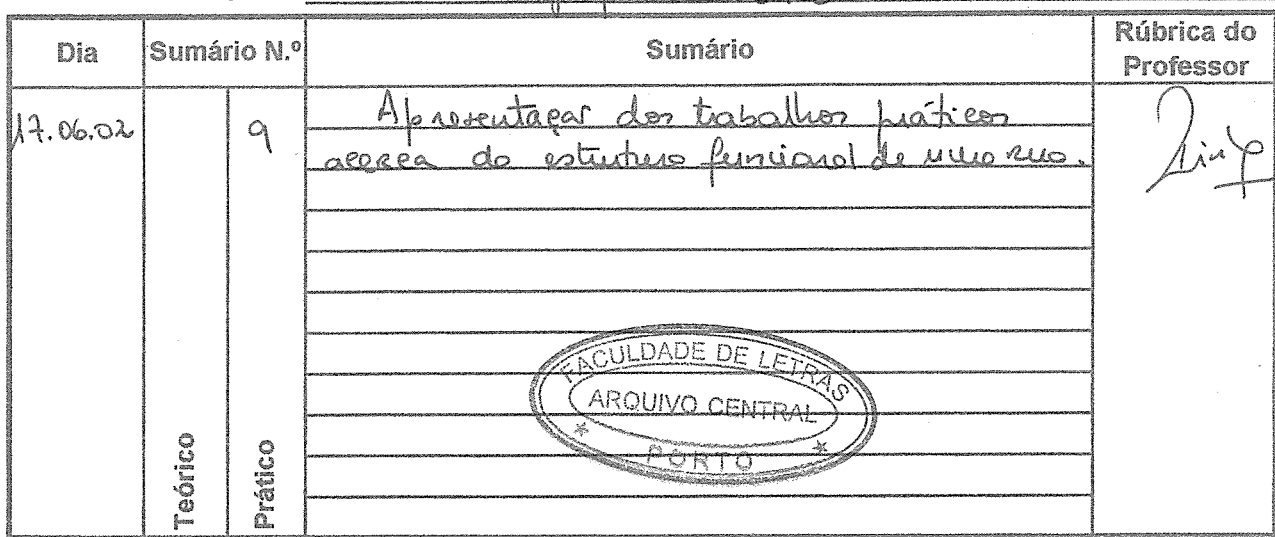 Dia Sumário N.º Sumário Rúbrica do Professor
17.06.02 9 Apresentação dos trabalhos práticos
acerca da estrutura funcional de uma rua.
Teórico Prático
FACULDADE DE LETRAS
ARQUIVO CENTRAL
* PORTO *